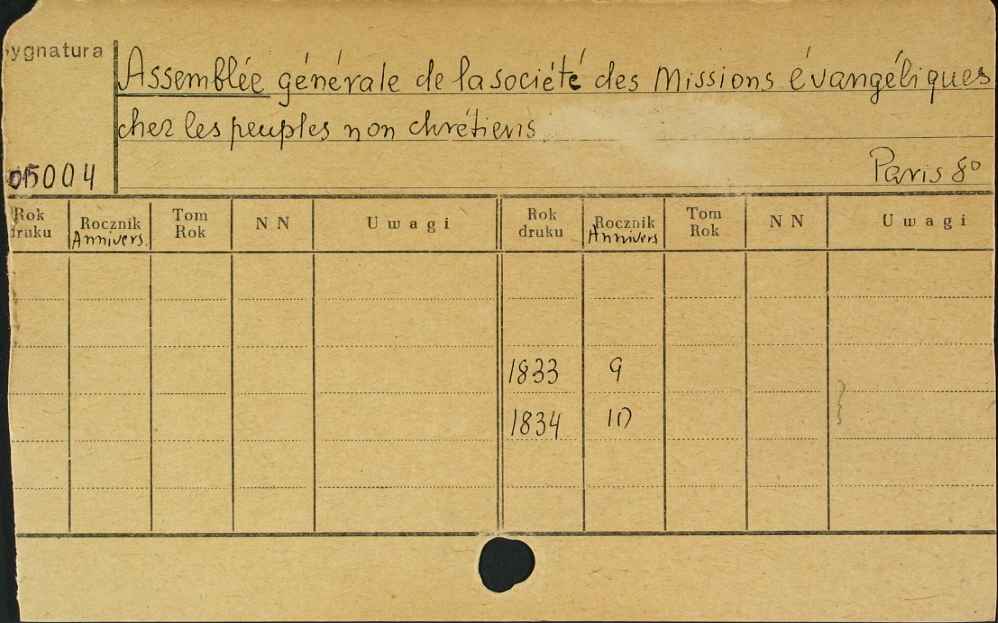 ygnatura
Assemblée générale de la société des Missions évangéliques
chez les peuples non chrétiens
05004
Paris 8°
Rok druku Rocznik Annivers. Tom Rok N N Uwagi Rok druku Rocznik Annivers Tom Rok N N Uwagi
1833 9
1834 10